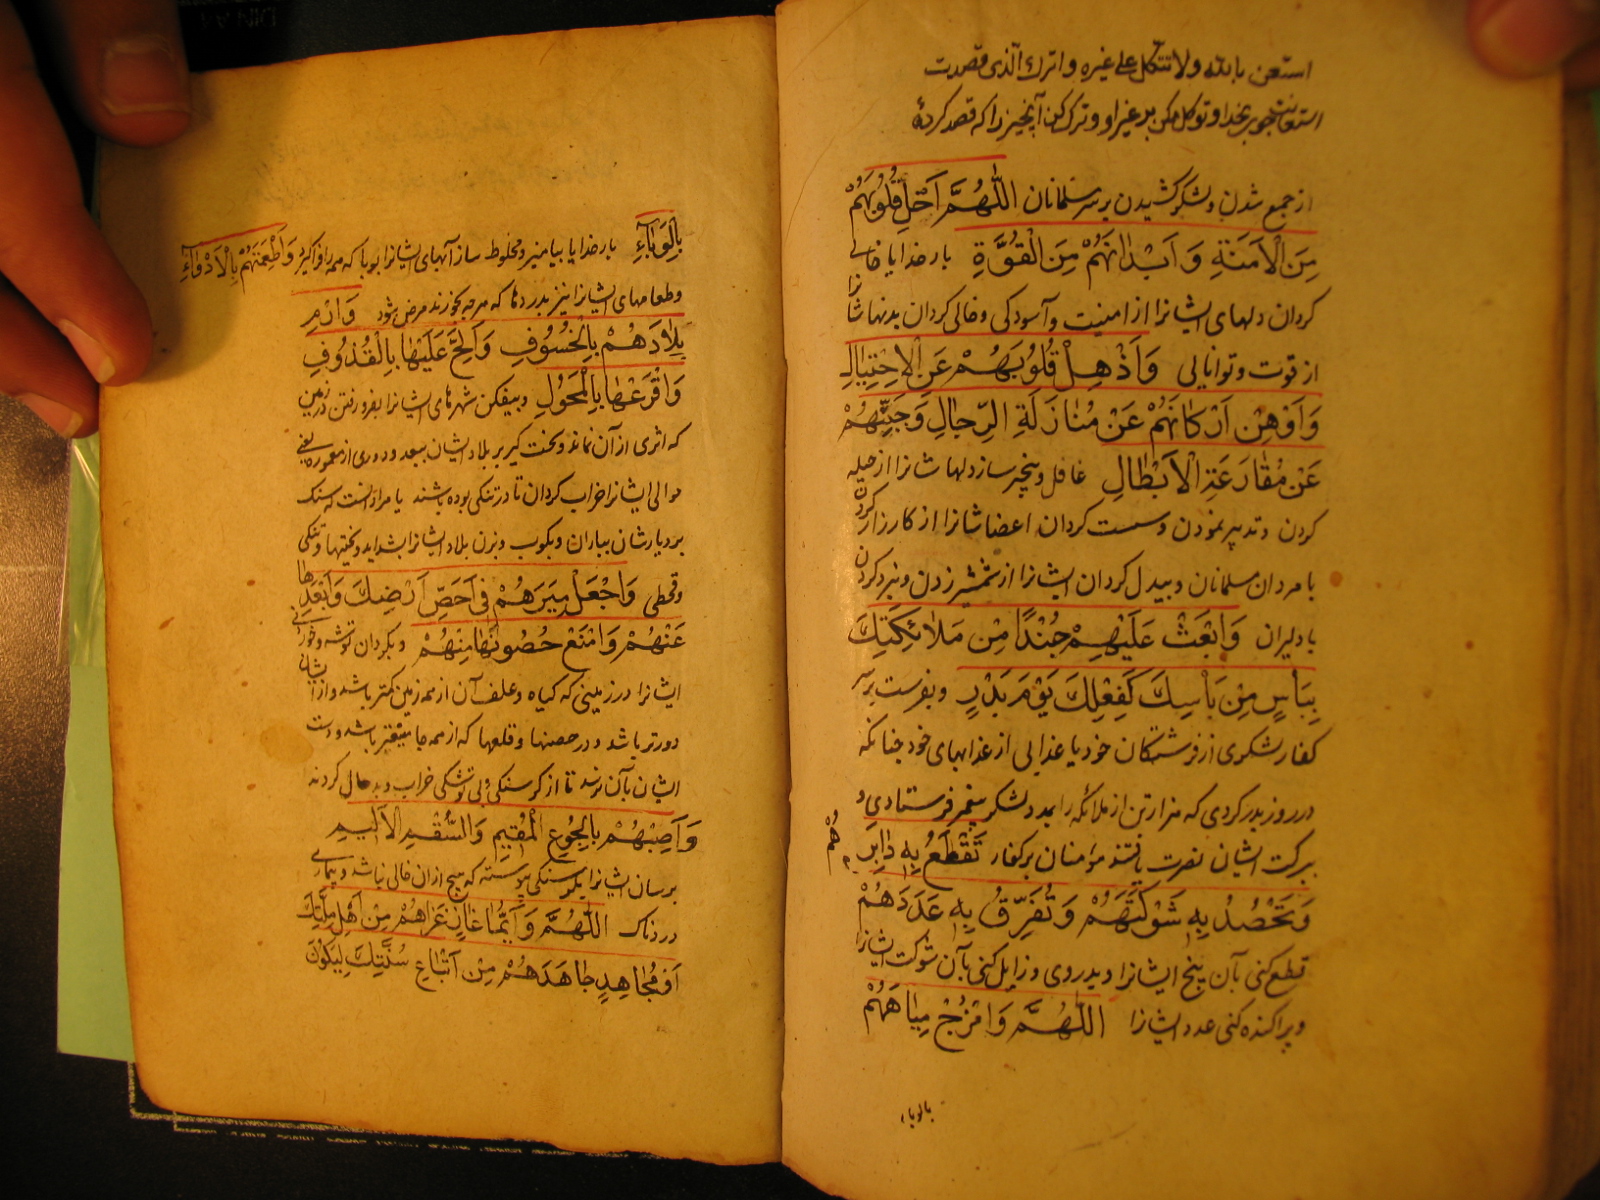 استعن بالله ولا تتكل على غيره واترك الذى قصدت
استعانت جوى بخدا و توكل مكن بر غير او و ترك كن آنچيز را كه قصد كردهٔ
از جمع شدن و لشكر كشيدن بر سر مسلمانان اَللّٰهُمَّ اَخْلِ قُلُوبَهُمْ
مِنَ الْاَمَنَةِ وَ اَبْدٰانَهُمْ مِنَ الْقُوَّةِ بار خدايا خالى
كردان دلهاى ايشانرا از امنيت و آسودكى و خالى كردان بدنهاشانرا
از قوت و توانائى وَ اَذْهِلْ قُلُوبَهُمْ عَنِ الْاِحْتِيٰالِ
وَ اَوْهِنْ اَرْكٰانَهُمْ عَنْ مُنٰازَلَةِ الرِّجٰالِ وَ جَبِّنْهُمْ
عَنْ مُقٰارَعَةِ الْاَبْطٰالِ غافل و بيخبر ساز دلهاشانرا از حيله
كردن و تدبير نمودن و سست كردان اعضاشانرا از كارزار كردن
با مردان مسلمانان و بيدل كردان ايشانرا از شمشير زدن و نبرد كردن
با دليران وَ ابْعَثْ عَلَيْهِمْ جُنْدًا مِنْ مَلٰائِكَتِكَ
بِبَأْسٍ مِنْ بَأْسِكَ كَفِعْلِكَ يَوْمَ بَدْرٍ و بفرست بر سر
كفار لشكرى از فرشتكان خود يا عذابى از عذابهاى خود چنانكه
در روز بدر كردى كه هزار تن از ملائكه را بمدد لشكر پيغمبر فرستادى و
ببركت ايشان نصرت يافتند مؤمنان بر كفار تَقْطَعُ بِهِ دٰابِرَهُمْ
وَ تَحْصُدُ بِهِ شَوْكَتَهُمْ وَ تُفَرِّقُ بِهِ عَدَدَهُمْ
قطع كنى بآن بيخ ايشانرا و بدروى و زايل كنى بآن شوكت ايشانرا
و پراكنده كنى عدد ايشانرا اَللّٰهُمَّ وَ امْزُجْ مِيٰاهَهُمْ
بالوباء
بِالْوَبٰاءِ بار خدايا بياميز و مخلوط ساز آبهاى ايشانرا بوبا كه همه را فراكيرد وَ اَطْعِمَتَهُمْ بِالْاَدْوٰاءِ
و طعامهاى ايشانرا نيز بدردها كه هرچه بخورند مرض شود وَ ارْمِ
بِلٰادَهُمْ بِالْخُسُوفِ وَ اَلِحَّ عَلَيْهٰا بِالْقُذُوفِ
وَ اقْرَعْهٰا بِالْمُحُولِ و بيفكن شهرهاى ايشانرا بفرو رفتن در زمين
كه اثرى از آن نماند و سخت كير بر بلاد ايشان ببعد و دورى از معموره يعنى
حوالى ايشانرا خراب كردان تا در تنكى بوده باشند يا مراد آنست كه سنك
بر ديارشان بباران و بكوب و بزن بلاد ايشانرا بشدايد و سختيها و تنكيها
و قحطى وَ اجْعَلْ مِيَرَهُمْ فِى اَحَصِّ اَرْضِكَ وَ اَبْعَدِهٰا
عَنْهُمْ وَ امْنَعْ حُصُونَهٰا مِنْهُمْ و بكردان توشه و خورانى
ايشانرا در زمينى كه كياه و علف آن از همه زمين كمتر باشد و از ايشان
دورتر باشد و در حصنها و قلعها كه از همه جا باشد و دست
ايشان بآن نرسد تا از كرسنكى و بى توشكى خراب و بدحال كردند
وَ اَصِبْهُمْ بِالْجُوعِ الْمُقِيمِ وَ السُّقْمِ الْاَلِيمِ
برسان ايشانرا بكرسنكى پيوسته كه هيچ از ان خالى نباشد و بيمارى
دردناك اَللّٰهُمَّ وَ اَيُّمٰا غٰازٍ غَزٰاهُمْ مِنْ اَهْلِ مِلَّتِكَ
اَوْ مُجٰاهِدٍ جٰاهَدَهُمْ مِنْ اَتْبٰاعِ سُنَّتِكَ لِيَكُونَ